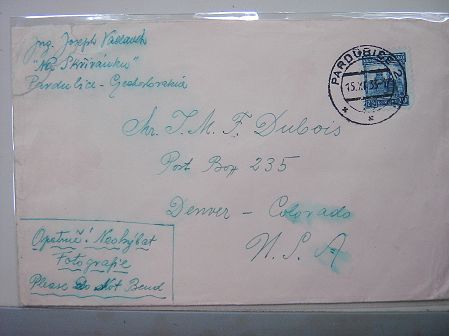 Ing. Joseph
"Na Skřivánku"
Pardubice - Czechoslovakia
PARDUBICE 2
Mr. T. M. F. Dubois
Post Box 235
Denver - Colorado
U. S. A
Opatrně! Neohýbat
Fotografie
Please Do Not Bend